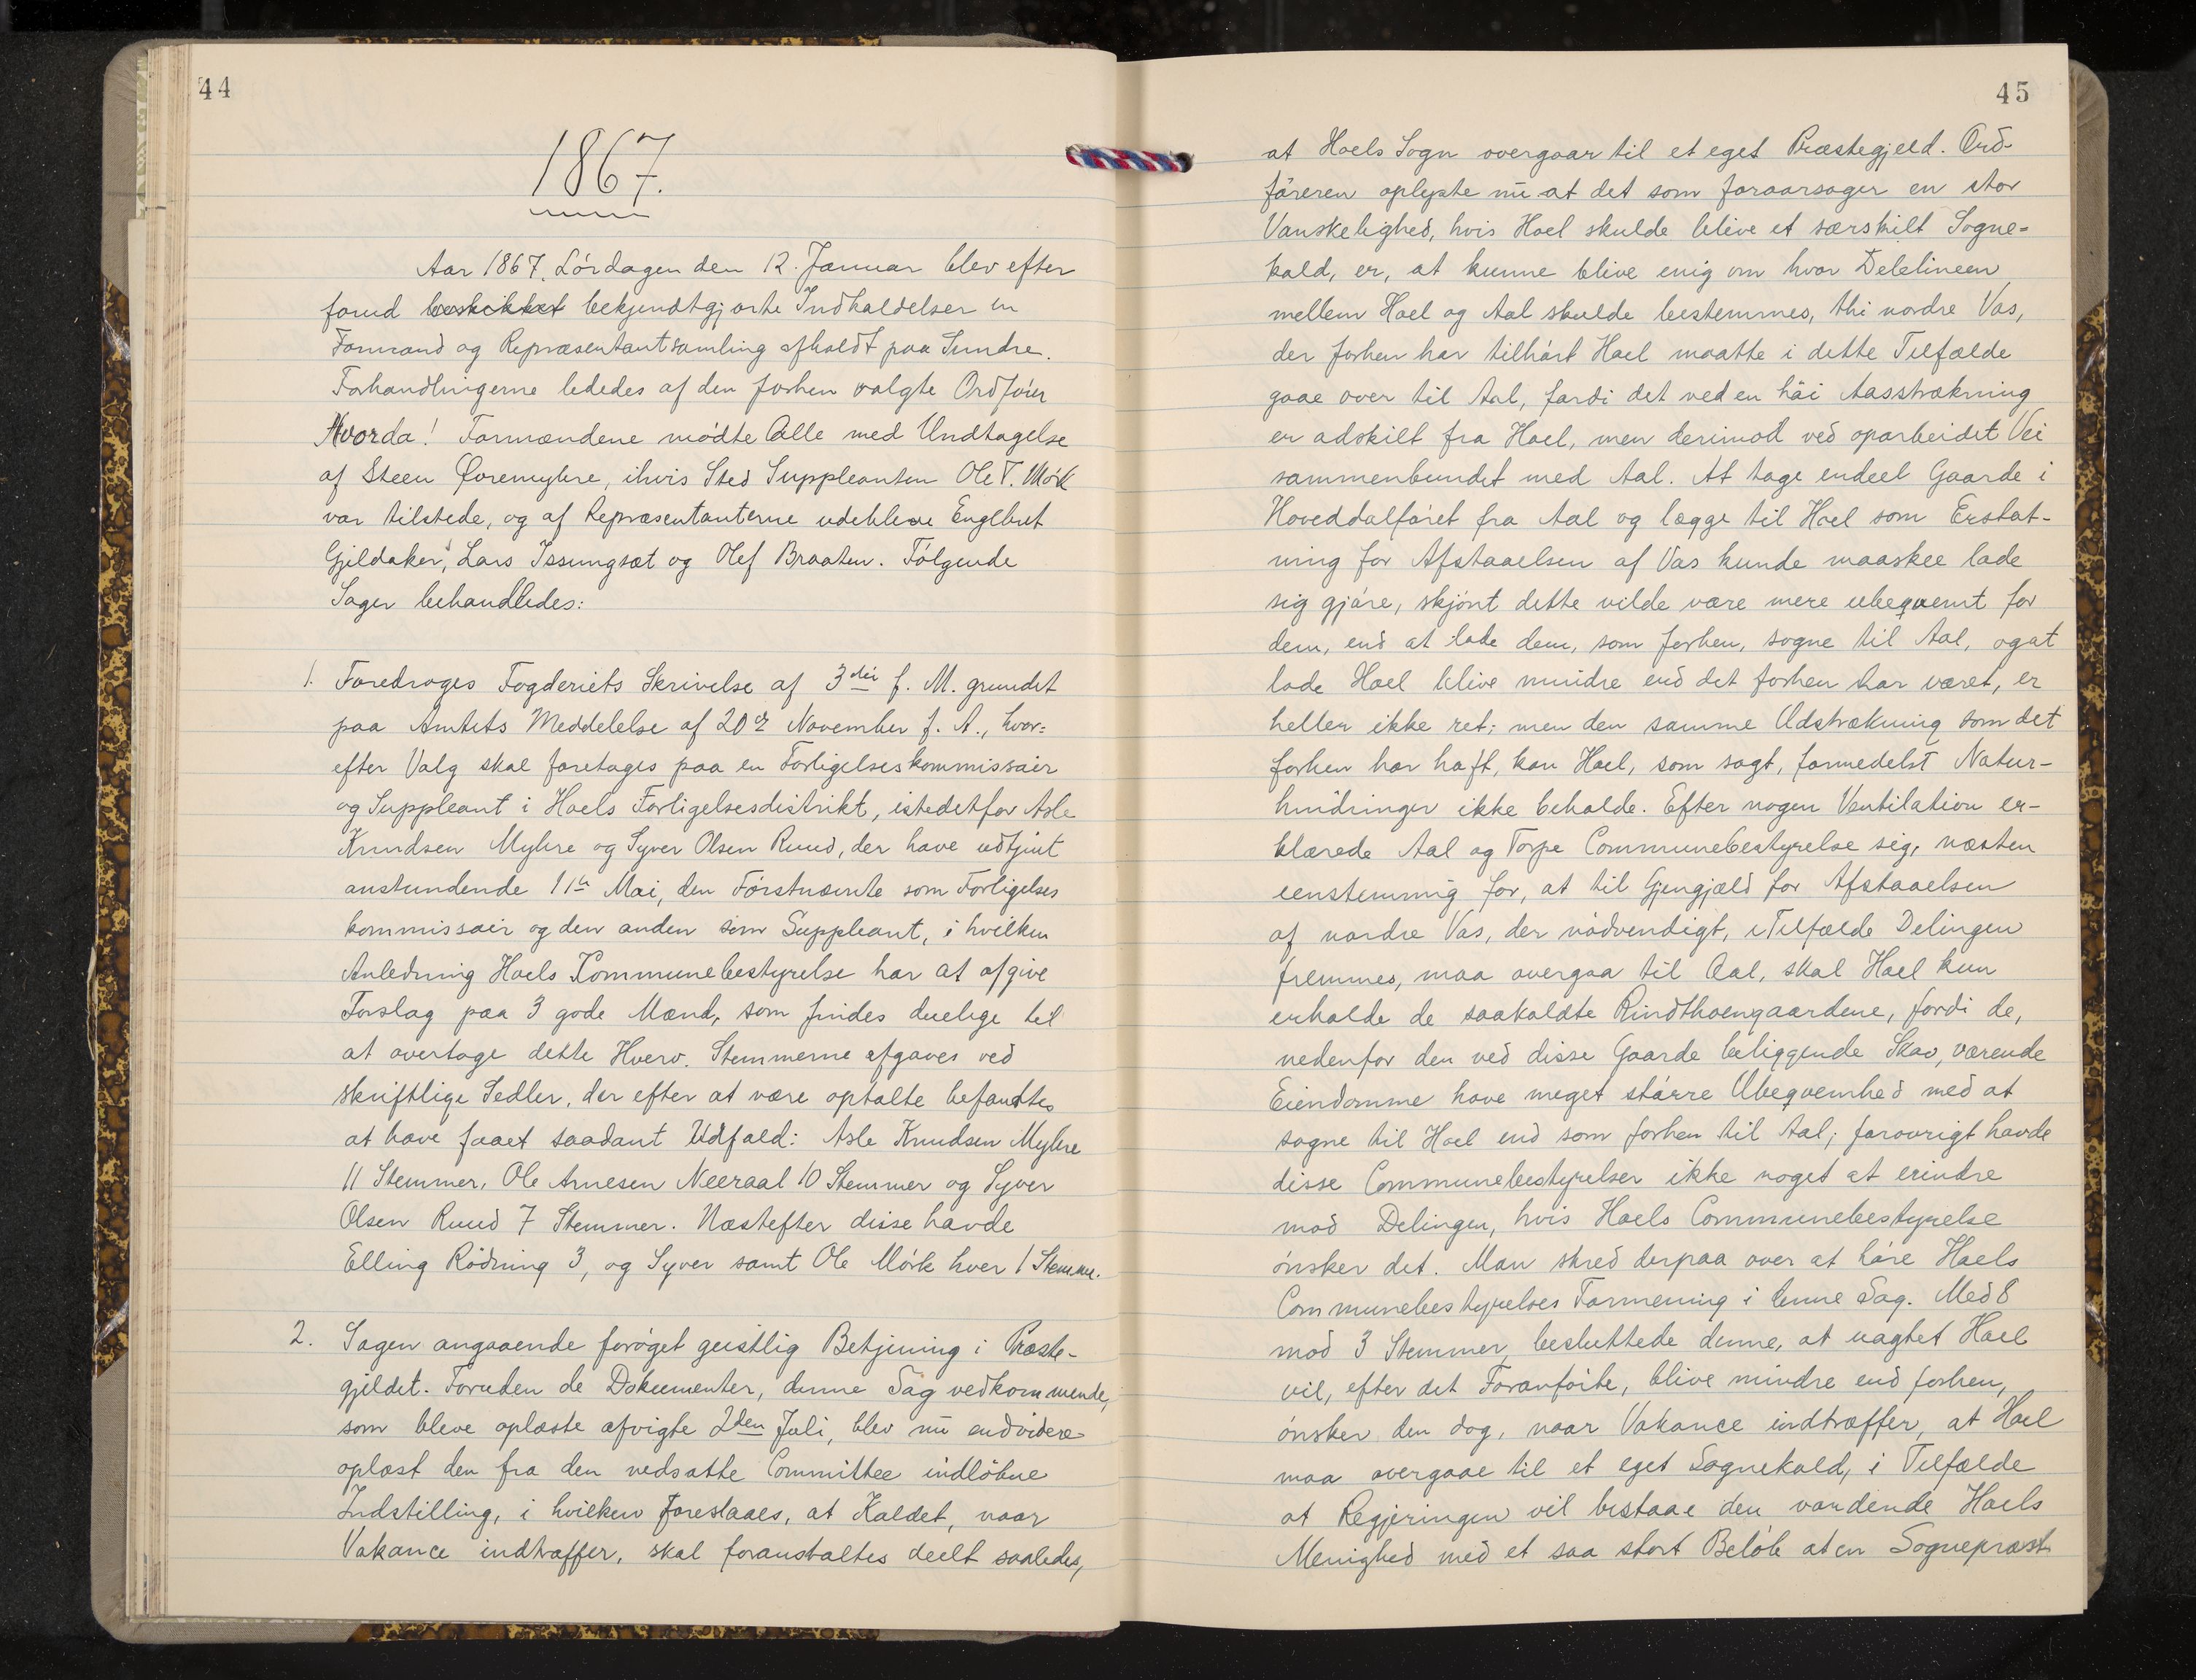 44
1867.
Aar 1867, Lördagen den 12. Januar blev efter
forud beskikket bekjendtgjorte Indkaldelser en
Formand og Repræsentantsamling afholdt paa Sundre.
Forhandlingerne lededes af den forhen valgte Ordföier
Nvorda! Formændene mödte Alle med Undtagelse
af Steen Övremyhre, ihvis Sted Suppleanten Ole T. Mörk
var tilstede, og af Repræsentanterne udebleve Englbret
Gjeldaker, Lars Issungsæt og Olef Braaten. Fölgende
Sager behandledes:
1. Foredroges Fogderiets Skrivelse af 3die f. M. grundet
paa Amtets Meddelelse af 20de November f. A., hvor=
efter Valg skal foretages paa en Forligelseskommissair
og Suppleant i Hoels Forligelsesdistrikt, istedetfor Asle
Knudsen Myhre og Syver Olsen Ruud, der have udtjent
anstundende 11te Mai, den Förstnævnte som Forligelses
kommissair og den anden som Suppleant, i hvilken
Anledning Hoels Kommunebestyrelse har at afgive
Forslag paa 3 gode Mænd, som findes duelige til
at overtage dette Hverv. Stemmerne afgaves ved
skriftlige Sedler, der efter at være optalte befandtes
at have faaet saadant Udfald: Asle Knudsen Myhre
11 Stemmer, Ole Arnesen Neeraal 10 Stemmer og Syver
Olsen Ruud 7 Stemmer. Næstefter disse havde
Elling Rödning 3, og Syver samt Ole Mörk hver 1 Stemme.
2. Sagen angaaende foröget geistlig Betjening i Præste-
gjeldet. Foruden de Dokumenter, denne Sag vedkommende,
som bleve oplæste afvigte 2den Juli, blev nu endvidere
oplæst den fra den nedsatte Committee indlöbne
Indstilling, i hvilken foreslaaes, at Kaldet, naar
Vakance indtræffer, skal foranstaltes deelt saaledes,
45
at Hoels Sogn overgaar til et eget Præstegjeld. Ord-
föreren oplyste nu at det som foraarsager en stor
Vanskelighed, hvis Hoel skulde blive et særskilt Sogne=
kald, er, at kunne blive enig om hvor Delelineen
mellem Hoel og Aal skulde bestemmes, thi nordre Vas,
der forhen har tilhört Hoel maatte i dette Tilfælde
gaae over til Aal, fordi det ved en höi Aasstrækning
er adskilt fra Hoel, men derimod ved oparbeidet Vei
sammenbundet med Aal. At tage endeel Gaarde i
Hoveddalföret fra Aal og lægge til Hoel som Erstat-
ning for Afstaaelsen af Vas kunde maaskee lade
sig gjöre, skjönt dette vilde være mere ubeqvemt for
dem, end at lade dem, som forhen, sogne til Aal, og at
lade Hoel blive mindre end det forhen har været, er
heller ikke ret; men den samme Udstrækning som det
forhen har haft, kan Hoel, som sagt, formedelst Natur-
hindringer ikke beholde. Efter nogen Ventilation er-
klærede Aal og Torpe Communebestyrelse sig, næsten
eenstemmig for, at til Gjengjæld for Afstaaelsen
af nordre Vas, der nödvendigt, i Tilfælde Delingen
fremmes, maa overgaa til Aal, skal Hoel kun
erholde de saakaldte Rindthoengaardene, fordi de,
nedenfor den ved disse Gaarde beliggende Skov, værende
Eiendomme have meget större Ubeqvemhed med at
sogne til Hoel end som forhen til Aal; forövrigt havde
disse Communebestyrelser ikke noget at erindre
mod Delingen, hvis Hoels Communebestyrelse
önsker det. Man skred derpaa over at höre Hoels
Communebestyrelses Formening i denne Sag. Med 8
mod 3 Stemmer, besluttede denne, at uagtet Hoel
vil, efter det Foranförte, blive mindre end forhen,
önsker den dog, naar Vakance indtræffer, at Hoel
maa overgaae til et eget Sognekald, i Tilfælde
at Regjeringen vil bistaae den vordende Hoels
Menighed med et saa stort Belöb at en Sognepræst